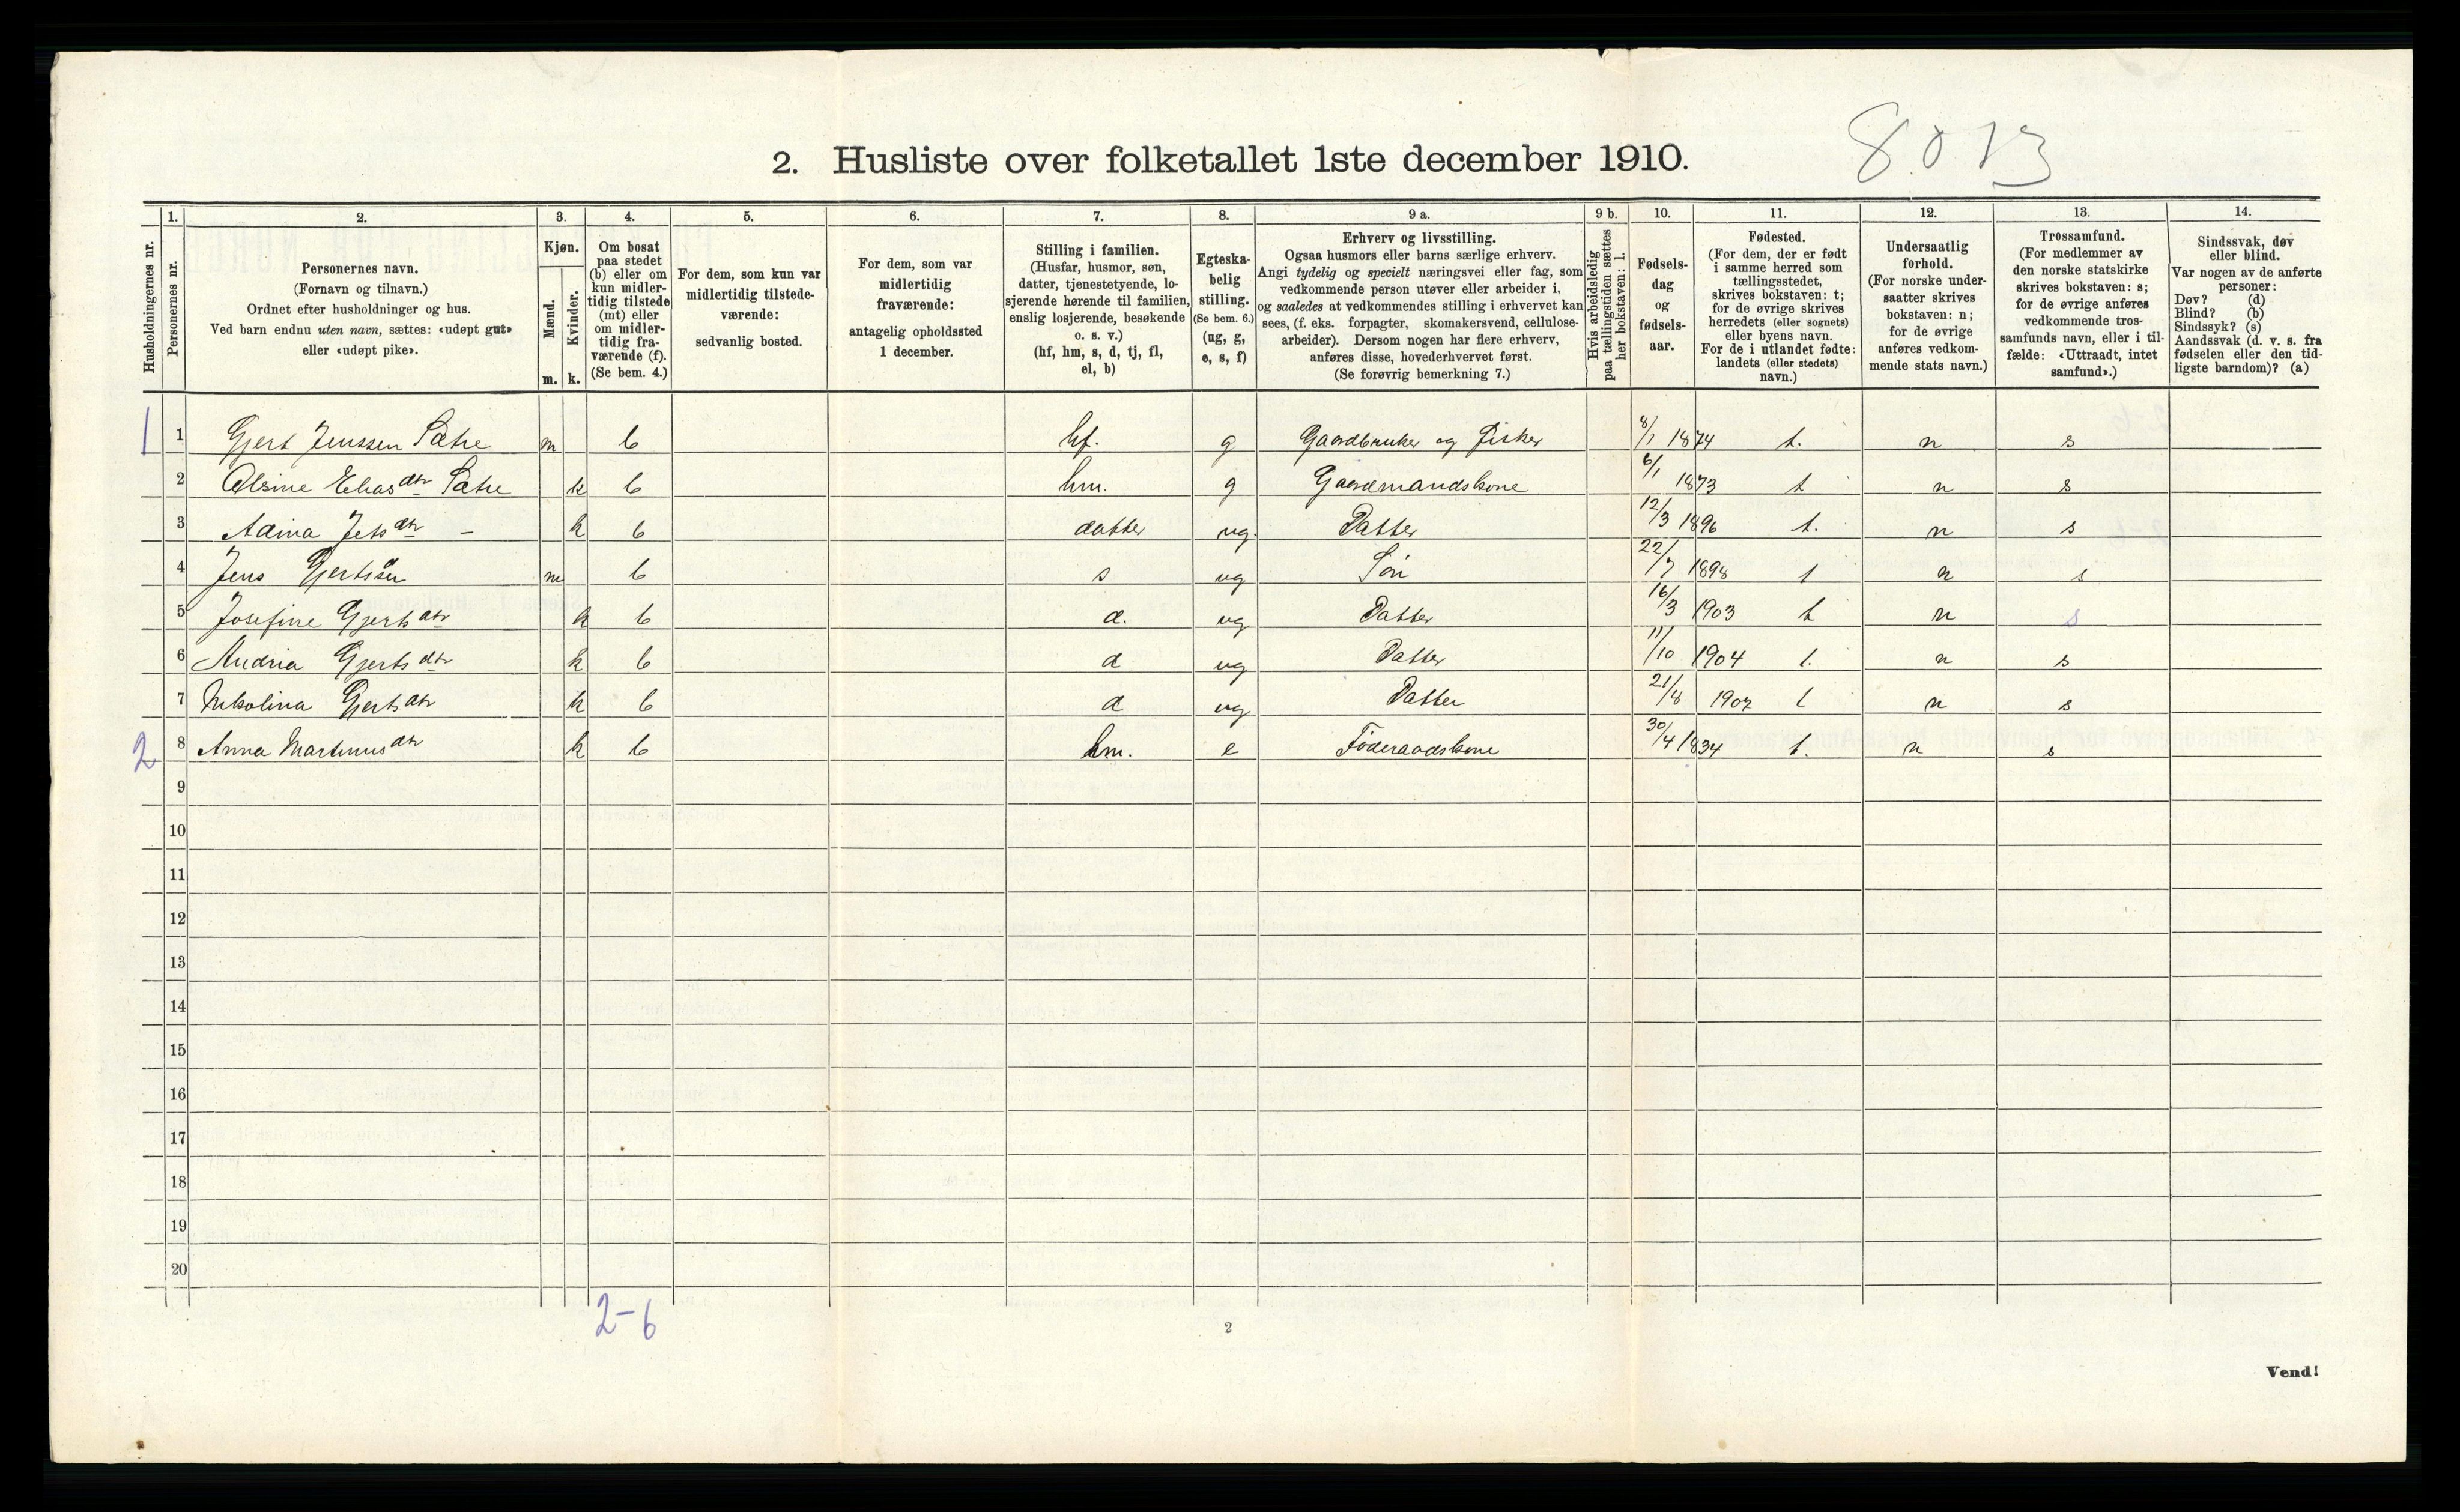 8013
2. Husliste over folketallet 1ste december 1910.
Husholdningernes nr.
1. Personernes nr.
2.
Personernes navn.
(Fornavn og tilnavn.)
Ordnet efter husholdninger og hus.
Ved barn endnu uten navn, sættes: «udøpt gut»
eller «udøpt pike».
3.
Kjøn.
Mænd. Kvinder.
m. k.
4.
Om bosat
paa stedet
(b) eller om
kun midler-
tidig tilstede
(mt) eller
om midler-
tidig fra-
værende (f).
(Se bem. 4.)
5.
For dem, som kun var
midlertidig tilstede-
værende:
sedvanlig bosted.
6.
For dem, som var
midlertidig
fraværende:
antagelig opholdssted
1 december.
7.
Stilling i familien.
(Husfar, husmor, søn,
datter, tjenestetyende, lo-
sjerende hørende til familien,
enslig losjerende, besøkende
o. s. v.)
(hf, hm, s, d, tj, fl,
el, b)
8.
Egteska-
belig
stilling.
(Se bem. 6.)
(ug, g,
e, s, f)
9 a.
Erhverv og livsstilling.
Ogsaa husmors eller barns særlige erhverv.
Angi tydelig og specielt næringsvei eller fag, som
vedkommende person utøver eller arbeider i,
og saaledes at vedkommendes stilling i erhvervet kan
sees, (f. eks. forpagter, skomakersvend, cellulose-
arbeider). Dersom nogen har flere erhverv,
anføres disse, hovederhvervet først.
(Se forøvrig bemerkning 7.)
9 b.
Hvis arbeidsledig
paa tællingstiden sættes
her bokstaven: l.
10.
Fødsels-
dag
og
fødsels-
aar.
11.
Fødested.
(For dem, der er født
i samme herred som
tællingsstedet,
skrives bokstaven: t;
for de øvrige skrives
herredets (eller sognets)
eller byens navn.
For de i utlandet fødte:
landets (eller stedets)
navn.)
12.
Undersaatlig
forhold.
(For norske under-
saatter skrives
bokstaven: n;
for de øvrige
anføres vedkom-
mende stats navn.)
13.
Trossamfund.
(For medlemmer av
den norske statskirke
skrives bokstaven: s;
for de øvrige anføres
vedkommende tros-
samfunds navn, eller i til-
fælde: «Uttraadt, intet
samfund».)
14.
Sindssvak, døv
eller blind.
Var nogen av de anførte
personer:
Døv? (d)
Blind? (b)
Sindssyk? (s)
Aandssvak (d. v. s. fra
fødselen eller den tid-
ligste barndom)? (a)
1 1 Gjert Jenssen Sætre m b hf. g Gaardbruker og Fisker 8/1 1874 t. n s
2 Olsine Eliasdtr Sætre k b hm. g Gaardmandskone 6/1 1873 t n s
3 Adina Jetsdtr - k b datter ug. Datter 12/3 1896 t. n s
4 Jens Gjertsen m b s ug Søn 22/7 1898 t n s
5 Josefine Gjertsdtr k b d. ug Datter 16/3 1903 t n s
6 Andria Gjertsdtr k b d ug Datter 11/10 1904 t. n s
7 Nikolina Gjertsdtr k b d ug Datter 21/8 1907 t n s
2 8 Anna Martinusdtr k b hm. e Föderaadskone 30/4 1834 t. n s
9
10
11
12
13
14
15
16
17
18
19
20
2-6
2
Vend!